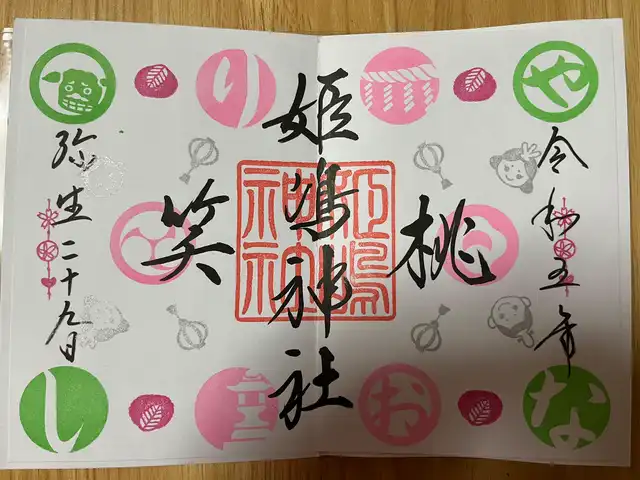 や
令和五年
な
桃
お
姫嶋神社
姫嶋神社
り
笑
弥生二十九日
し